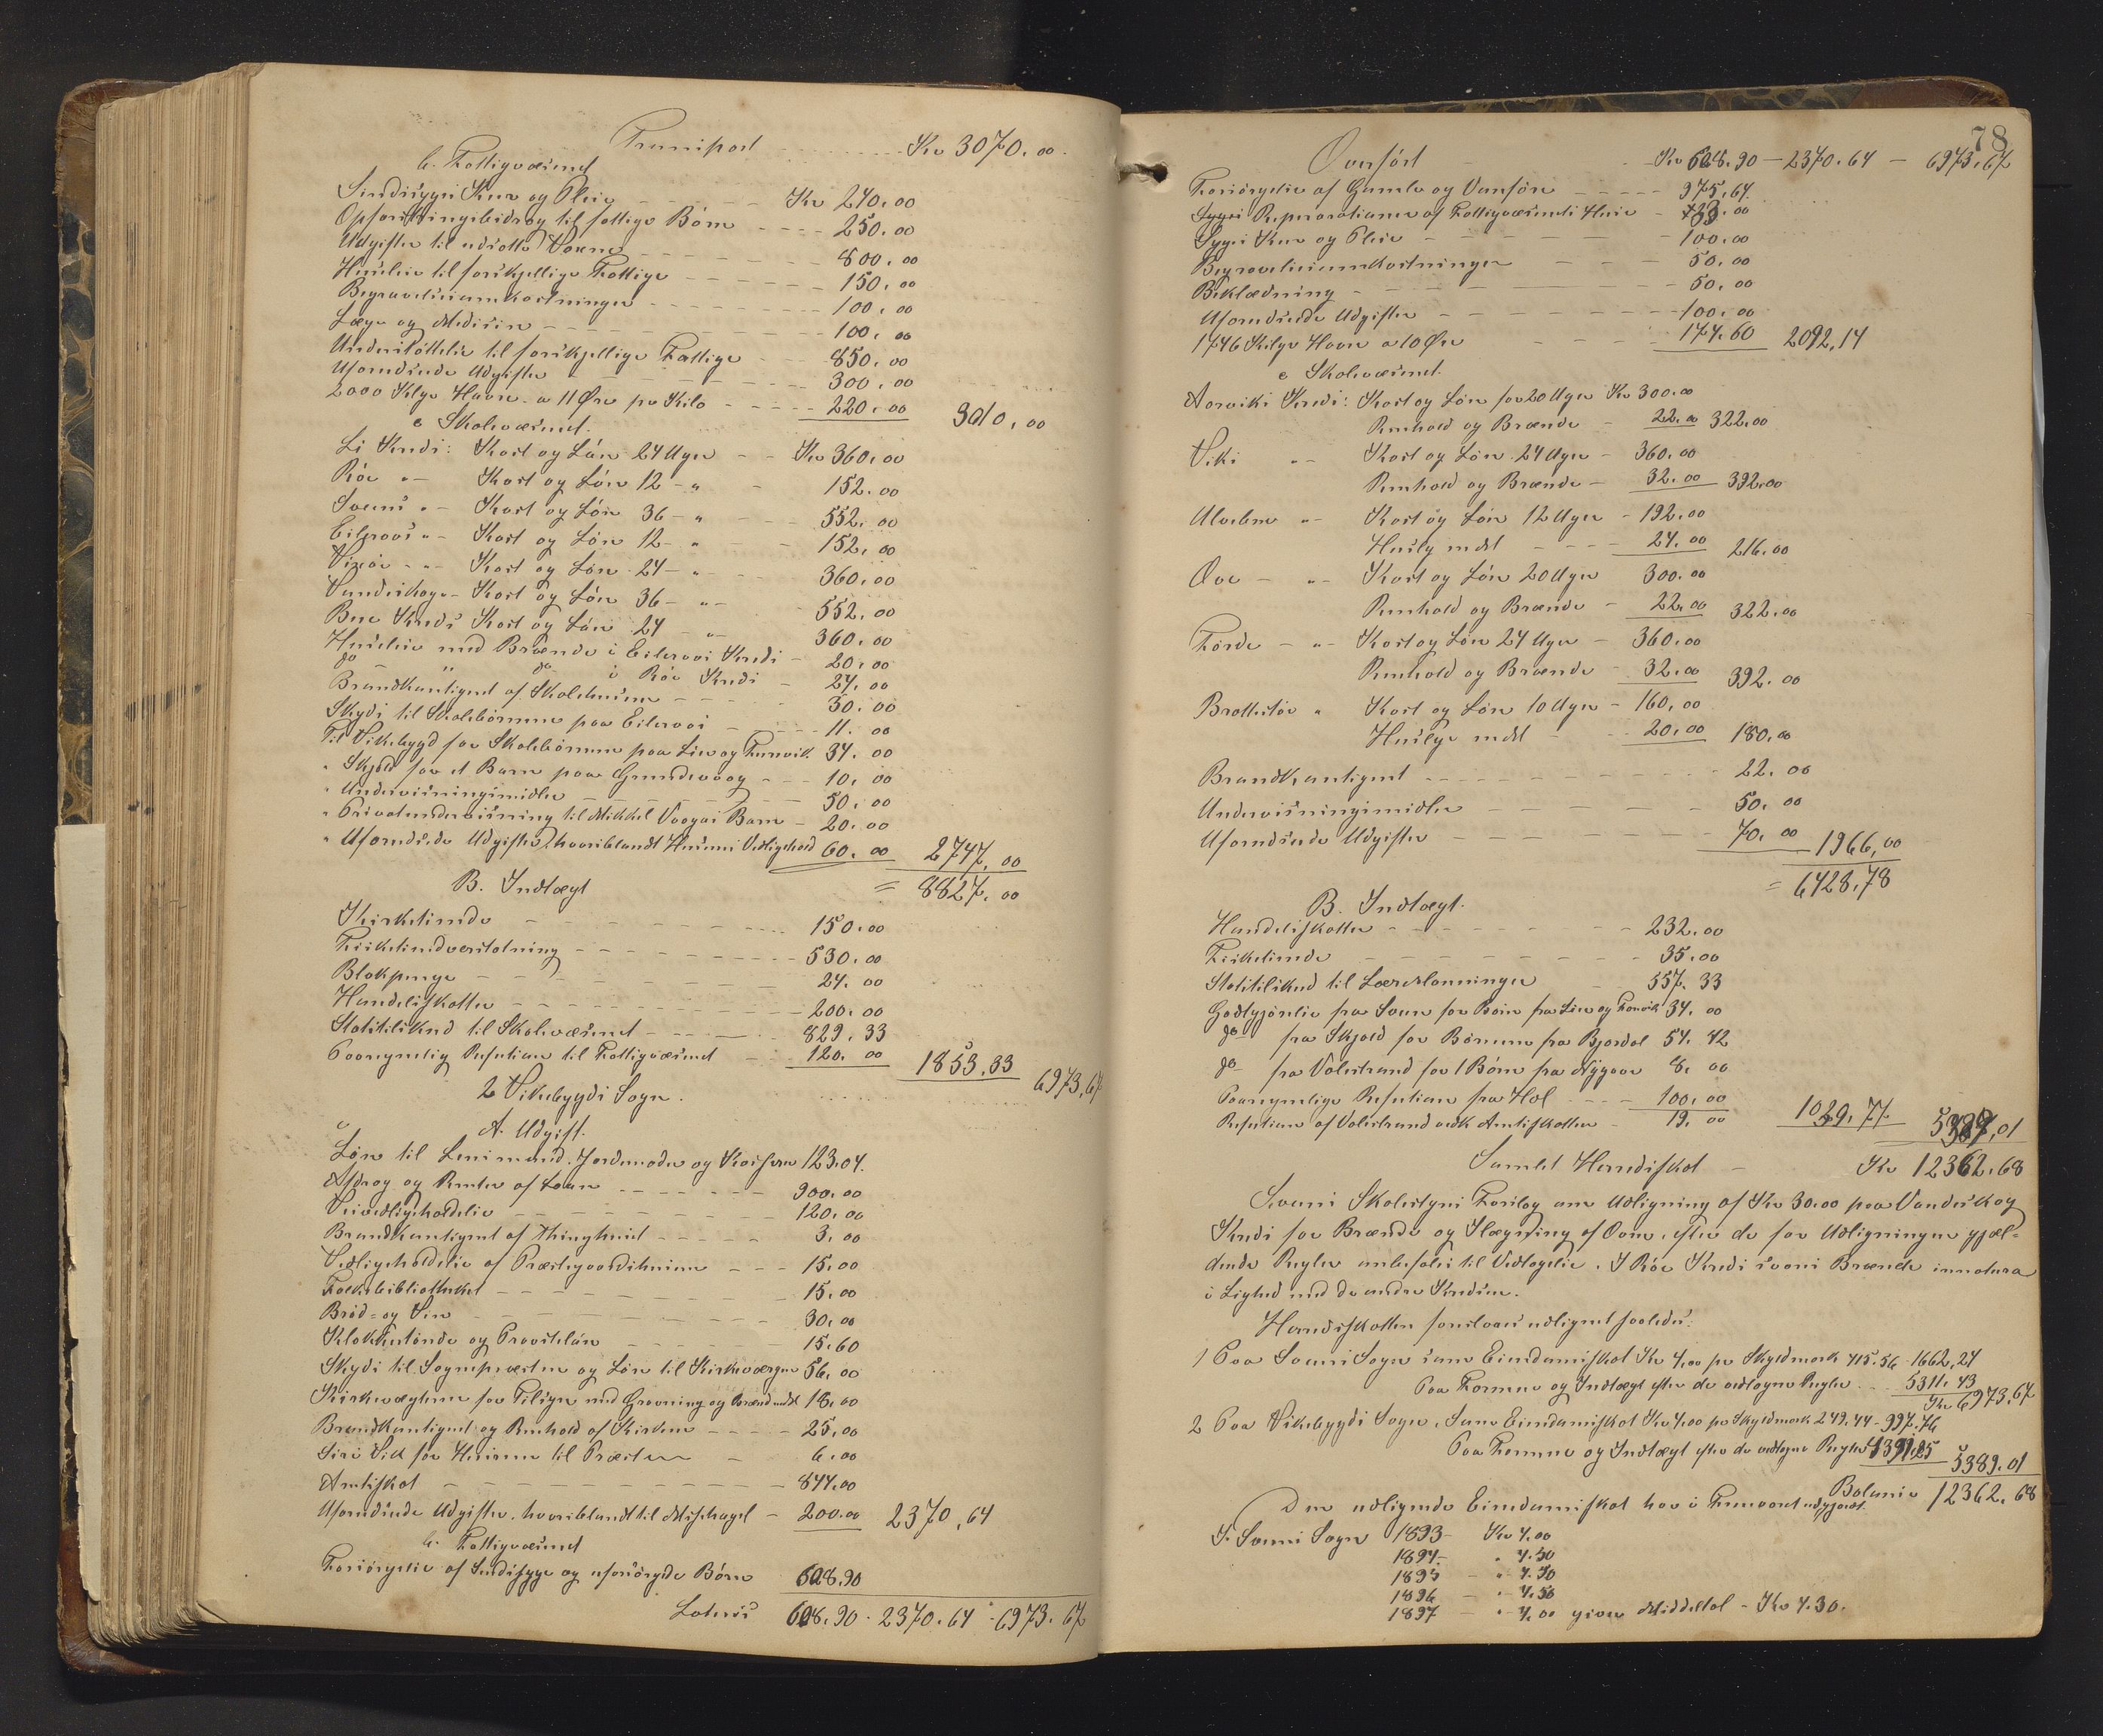 Transport - - - - - Kr 3070.00
b. Fattigvæsenet
Sindssyges Kur og Pleie - - - Kr 240.00
Opfostringsbidrag til fattige Børn - - - 250.00
Udgifter til udsatte Voxne - - - 800.00
Husleie til forskjellige Fattige - - - 150.00
Begravelsesomkostninger - - - 100.00
Læge og Medisin - - - 100.00
Understøttelse til forskjellige Fattige - - - 850.00
Uforudseede Udgifter - - - 300.00
2000 Kilgr Havre a 11 Øre pr Kilo - - - 220.00 3010.00
c Skolevæsenet.
Li Kreds: Kost og Løn 24 Uger - - Kr 360.00
Röe " - Kost og Løn 12 - " - 152.00
Sveens " - Kost og Løn 36 - " - - 552.00
Eileraas " - Kost og Løn 12 - " - - 152.00
Kost og Løn 24 - " - - 360.00
Vandaskog - Kost og Løn 36 - " - 552.00
Bue Kreds Kost og Løn 24 - " - 360.00
Husleie med Brænde i Eileraas Kreds - 20.00
do - " do i Röe Kreds - 24.00
Brandkontigent af Skolehusene - - - 30.00
Skyds til Skolebørnene paa Eileraas - - - 11.00
Til Vikebygd for Skolebørnene paa Lien og Tornvik 34.00
" Skjold for et Barn paa Grundevaag - - - 10.00
" Undervisningsmidler - - - 50.00
" Privatundervisning til Mikkel Vaagas Barn - 20.00
" Uforudseede Udgifter, hvoriblandt Husenes Vedligehold 60.00 2747.00
= 8827.00
B. Indtægt
Kirketiende - - - 150.00
Fisketiendeerstatning - - - 530.00
Blokpenge - - - 24.00
Handelsskatter - - - 200.00
Statstilskud til Skolevæsenet - - - 829.33
Paaregnelig Refusion til Fattigvæsenet - - 120.00 1853.33 6973.67
2 Vikebygds Sogn.
A. Udgift.
Løn til Lensmand, Jordmoder og Kasserer 123.04.
Afdrag og Renter af Laan - - - 900.00
Veivedligeholdelse - - - 120.00
Brandkontigent af Thinghuset - - - 3.00
Vedligeholdelse af Præstegaardshusene - - - 15.00
Folkebibliotheket - - - 15.00
Brød- og Vin - - - 30.00
Klokketønde og Provsteløn - - 15.60
Skyds til Sognepræsten og Løn til Kirkeværgen 56.00
Kirkevægteren for Tilsyn med Gravning og Brænd mdt 18.00
Brandkontigent og Renhold af Kirken - - - 25.00
6.00
Amtsskat - - - 844.00
Uforudseede Udgifter, hvoriblandt til Misshagel - 200.00 2370.64
b. Fattigvæsenet
Forsørgelse af Sindssyge og uforsørgede Børn 608.90
Lateris 608.90 - 2370.64 - 6973.67
78
Overført - - - Kr 608.90 - 2370.64 - 6973.67
Forsørgelse af Gamle og Vanføre - - - 975.64
Reparationer af Fattigvæsenets Huse - 33.00
Syges Kur og Pleie - - - 100.00
Begravelsesomkostninger - - - 50.00
Beklædning - - - 50.00
Uforudseede Udgifter - - - 100.00
1746 Kilgr Havre a 10 Øre - - - 174.60 2092.14
c Skolevæsenet.
Aarviks Kreds: Kost og Løn for 20 Uger Kr 300.00
Renhold og Brænde - 22.00 322.00
Viks " - Kost og Løn 24 Uger - 360.00
Renhold og Brænde - 32.00 392.00
Ulveland " - Kost og Løn 12 Uger - 192.00
Huslg mdt - - - 24.00 216.00
- " - Kost og Løn 20 Uger 300.00
Renhold og Brænde - 22.00 322.00
Førde - " - Kost og Løn 24 Uger - 360.00
Renhold og Brænde - 32.00 392.00
Brattestøe " Kost og Løn 10 Uger - 160.00
Huslge mdt - 20.00 180.00
Brandkontigent - - - 22.00
Undervisningsmidler - - - 50.00
Uforudseede Udgifter - - - 70.00 1966.00
= 6428.78
B. Indtægt.
Handelsskatter - - - 232.00
Fisketiende - - - 35.00
Statstilskud til Lærerlønninger 557.33
Godtgjørelse fra Sveen for Børn fra Lien og Tornvik 34.00
do fra Skjold for Børnene fra Bjordal 54.42
do fra Valestrand for 1 Børn fra Nygaar 8.00
Paaregnelige Refusion fra Hol - - - 100.00
Refusion af Valestrand vedk Amtsskatten - 19.00 1039.77 5389.01
Samlet Herredsskat - Kr 12362.68
Sveens Skolestyres Forslag om Udligning af Kr 30.00 paa Vandaskog
Kreds for Brænde og Ilægning af Ovne, efter de for Udligningen gjæl-
dende Regler anbefales til Vedtagelse. I Röe Kreds svares Brænde innatura
i Lighed med de andre Kredse.
Herredsskatten foreslaaes udlignet saaledes:
1 Paa Sveens Sogn som Eiendomsskat Kr 4.00 pr Skyldmark 415.56 - 1662.24
Paa Formue og Indtægt efter de vedtagne Regler - 5311.43
Kr 6973.67
2 Paa Vikebygds Sogn. Som Eiendomsskat Kr 4.00 pr Skyldmark 249.44 - 997.76
Paa Formue og Indtægt efter de vedtagne Regler 4391.25 5389.01
Balance 12362.68
Den udlignede Eiendomsskat har i Femaaret udgjordt.
I. Sveens Sogn 1893 - Kr 4.00
1894 - " 4.50
1895 - " 4.50
1896 - " 4.50
1897 - " 4.00 giver Middeltal - Kr 4.30.